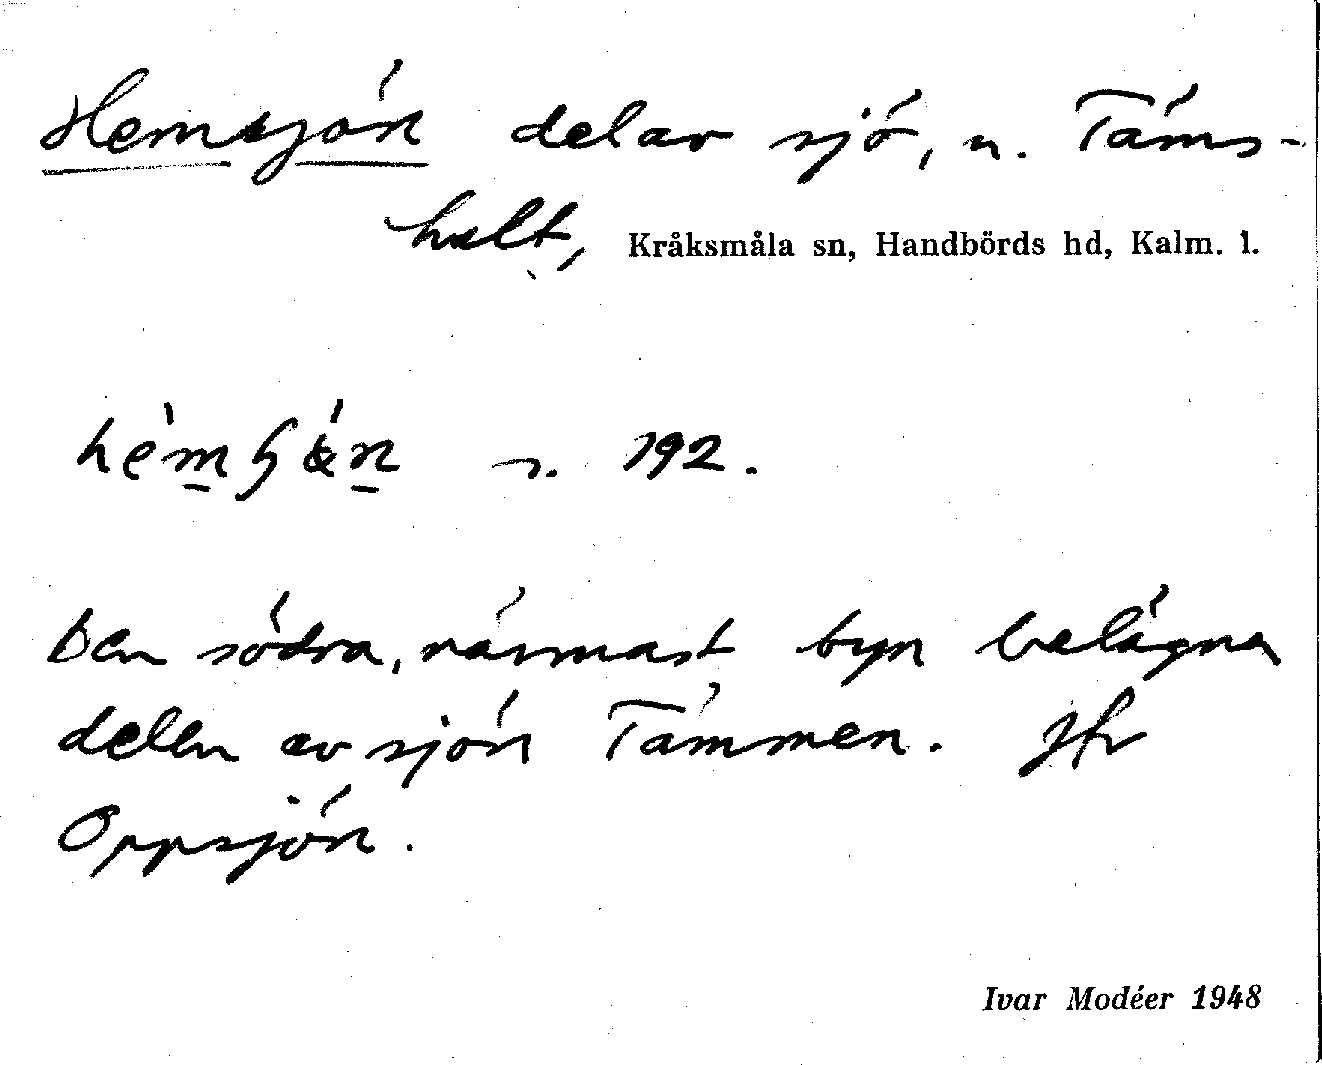 Hemsjön del av sjö, n. Täms-
hult, Kråksmåla sn, Handbörds hd, Kalm. l.
s. 192.
Den södra, närmast byn belägna
delen av sjön Tämmen. Jfr
Oppsjön.
Ivar Modéer 1948